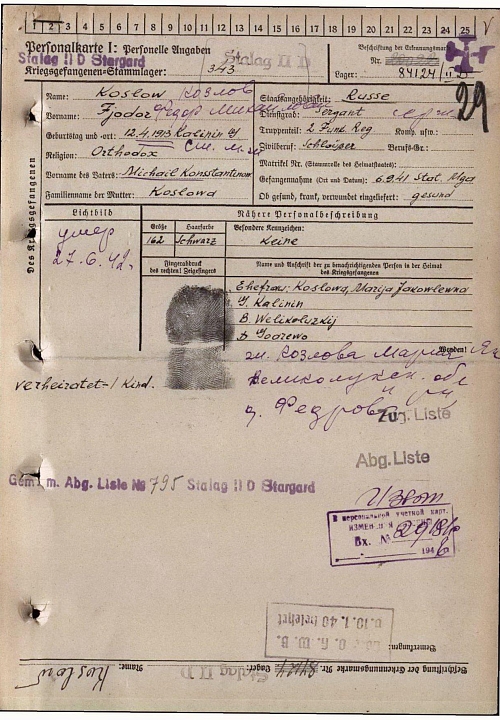 1 2 3 4 5 6 7 8 9 10 11 12 13 14 15 16 17 18 19 20 21 22 23 24 25
Personalkarte I: Personelle Angaben
Stalag II D Stargard
Kriegsgefangenen-Stammlager: 343
Stalag II D
Beschriftung der Erkennungsmarke
Nr.
Lager: 84124 II D
29
Des Kriegsgefangenen
Name: Koslow Козлов
Vorname: Fjodor Федор Михайлович
Geburtstag und -ort: 12.4.1913 Kalinin G
Religion: Orthodox
Vorname des Vaters: Michail Konsstantinow
Familienname der Mutter: Koslowa
Staatsangehörigkeit: Russe
Dienstgrad: Sergant
Truppenteil: 2 Funk. Reg Komp. usw.:
Zivilberuf: Schlosser Berufs-Gr.:
Matrikel Nr. (Stammrolle des Heimatstaates):
Gefangennahme (Ort und Datum): 6.9.41
Ob gesund, krank, verwundet eingeliefert: gesund
Lichtbild
умер
27.6.42г.
Nähere Personalbeschreibung
Größe Haarfarbe Besondere Kennzeichen:
162 Schwarz Keine
Fingerabdruck
des rechten Zeigefingers
Name und Anschrift der zu benachrichtigenden Person in der Heimat
des Kriegsgefangenen
Ehefrau: Koslowa, Marija Jakowlewna
G. Kalinin
B. Welikoluzkij
Wenden!
Козлова Мария Як
Великолукск. обл
verheiratet-1 Kind.
Zug. Liste
Abg. Liste
Gem. m. Abg. Liste № 795 Stalag II D Stargard
В персональной учетной карт.
Вх. №
194
10.1.40 belehrt
Bemerkungen:
Beschriftung der Erkennungsmarke Nr. 84124 Lager: Stalag II D Name: Koslow